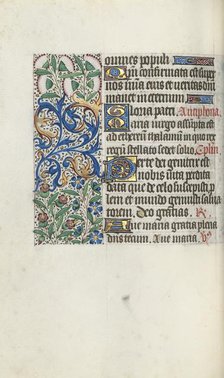 omnes populi
Qm confirmata est super
nos mia eius et veritas dni
manet in eternum
Gloria patri Antiphona
Maria virgo assumpta est
ad ethereum thalamum in quo rex
regum stellato sedet solio
te dei genitrix est
nobis vita perdita
data que de celo suscepisti
dem et mundo genuisti salua
torem. Deo gratias.
Aue maria gratia plena
dns tecum. Aue maria